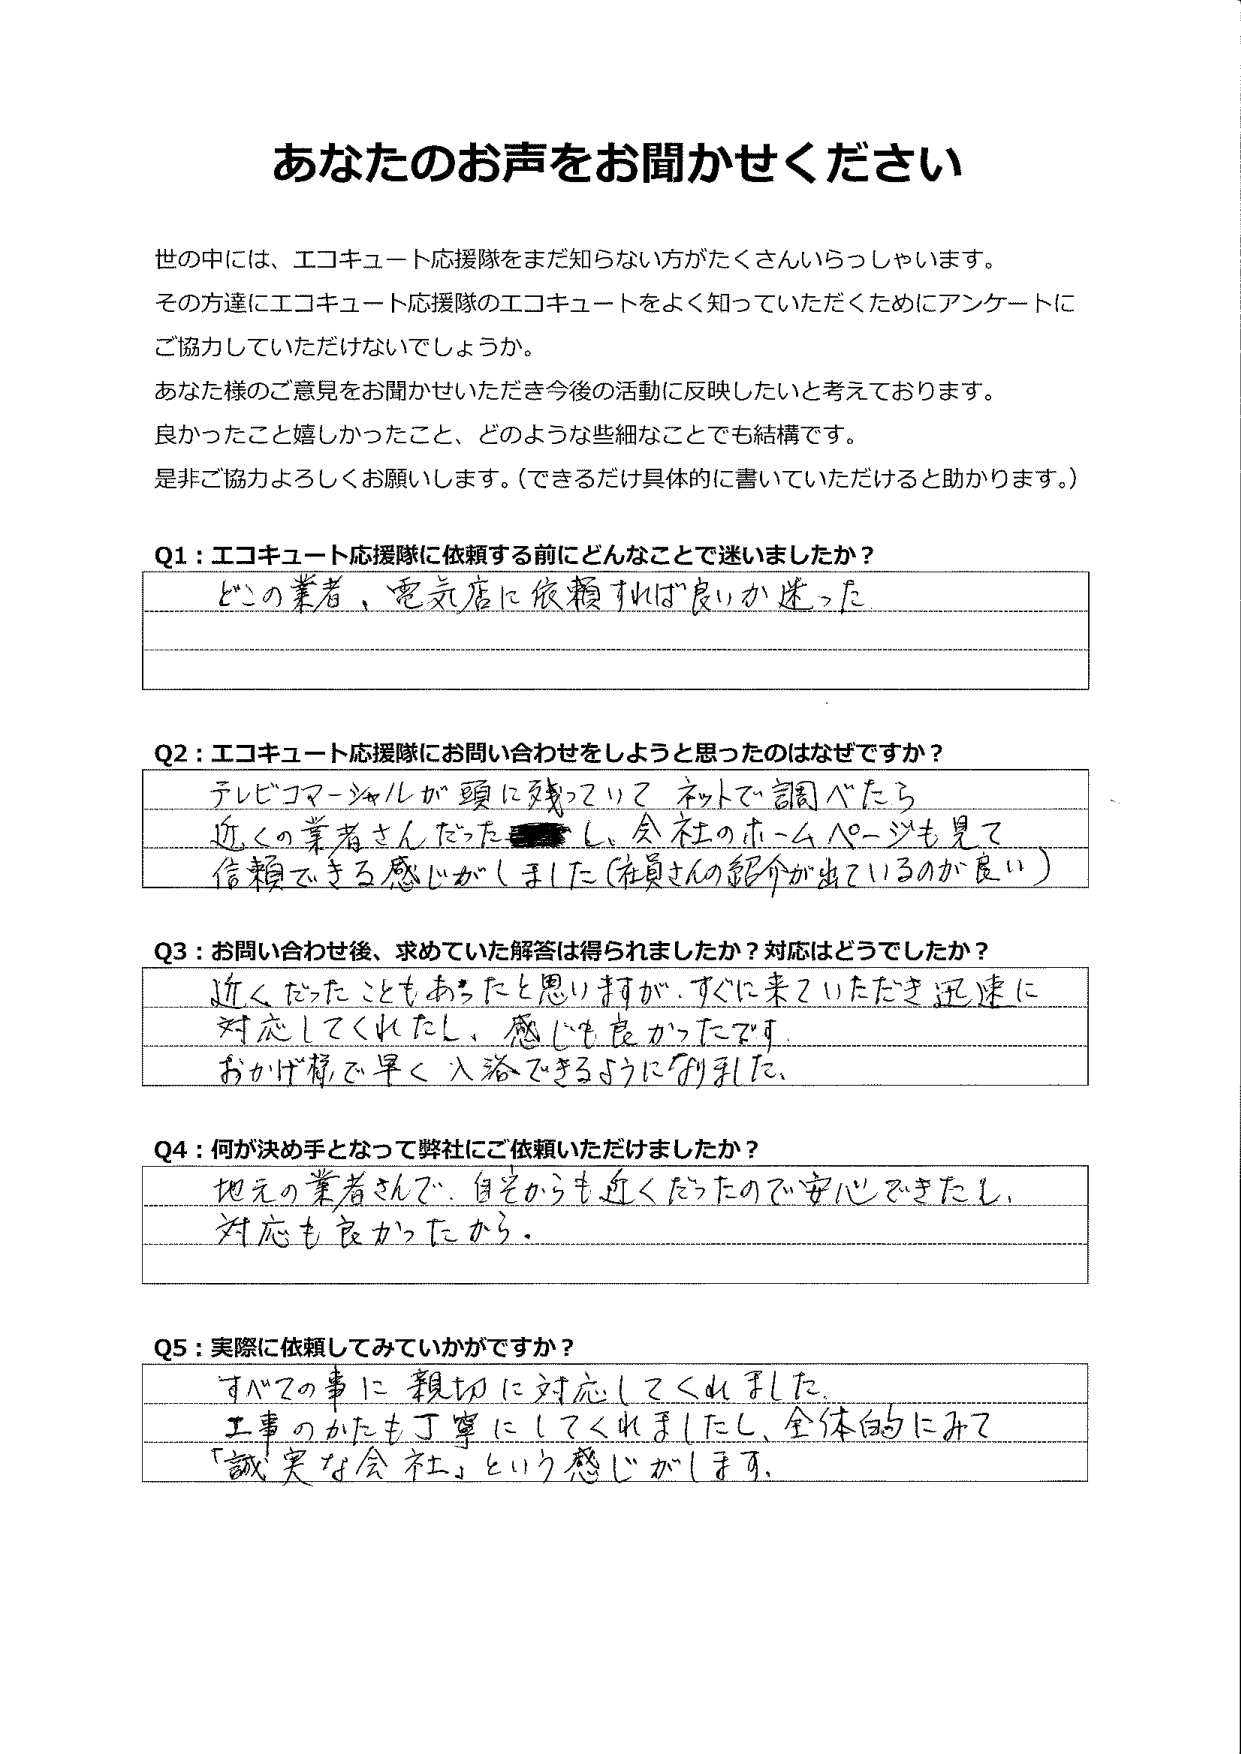 あなたのお声をお聞かせください
世の中には、エコキュート応援隊をまだ知らない方がたくさんいらっしゃいます。
その方達にエコキュート応援隊のエコキュートをよく知っていただくためにアンケートに
ご協力していただけないでしょうか。
あなた様のご意見をお聞かせいただき今後の活動に反映したいと考えております。
良かったこと嬉しかったこと、どのような些細なことでも結構です。
是非ご協力よろしくお願いします。(できるだけ具体的に書いていただけると助かります。)
Q1：エコキュート応援隊に依頼する前にどんなことで迷いましたか？
どこの業者、電気店に依頼すれば良いか迷った
Q2：エコキュート応援隊にお問い合わせをしようと思ったのはなぜですか？
テレビコマーシャルが頭に残っていて ネットで調べたら
近くの業者さんだったし、会社のホームページも見て
信頼できる感じがしました(社員さんの紹介が出ているのが良い)
Q3：お問い合わせ後、求めていた解答は得られましたか？対応はどうでしたか？
近くだったこともあったと思いますが、すぐに来ていただき迅速に
対応してくれたし、感じも良かったです.
おかげ様で早く入浴できるようになりました、
Q4：何が決め手となって弊社にご依頼いただけましたか？
地元の業者さんで、自宅からも近くだったので安心できたし、
対応も良かったから.
Q5：実際に依頼してみていかがですか？
すべての事に親切に対応してくれました.
工事のかたも丁寧にしてくれましたし、全体的にみて
「誠実な会社」という感じがします.